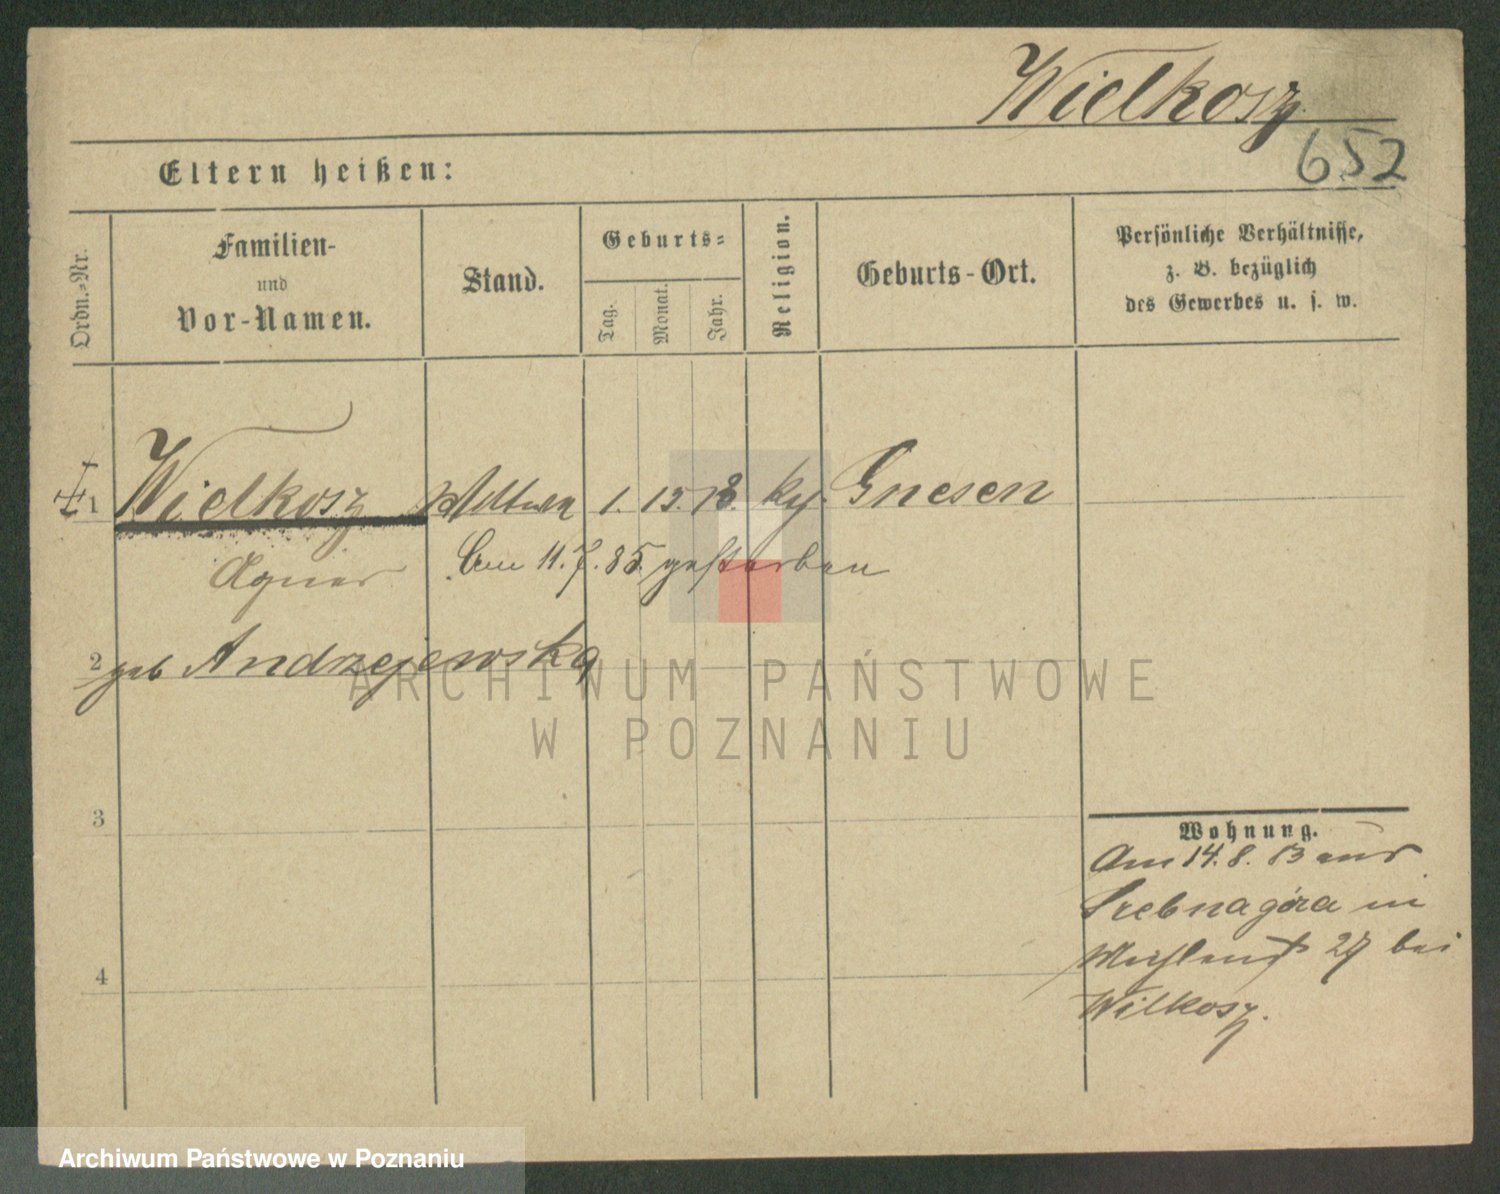 Wielkosz
652
Eltern heißen:
Ordn.-Nr.
Familien-
und
Vor-Namen.
Stand.
Geburts-
Tag.
Monat.
Jahr.
Religion.
Geburts-Ort.
Persönliche Verhältnisse,
z. B. bezüglich
des Gewerbes u. s. w.
1 Wielkosz 1. 15. 18. kg. Gnesen
Agnes Am 11.7.85 gestorben
2 geb Andrzejewska
3
4
Wohnung.
Am 14.8.83 aus
Srebnagóra in
27 bei
Wilkosz.
ARCHIWUM PAŃSTWOWE
W POZNANIU
Archiwum Państwowe w Poznaniu